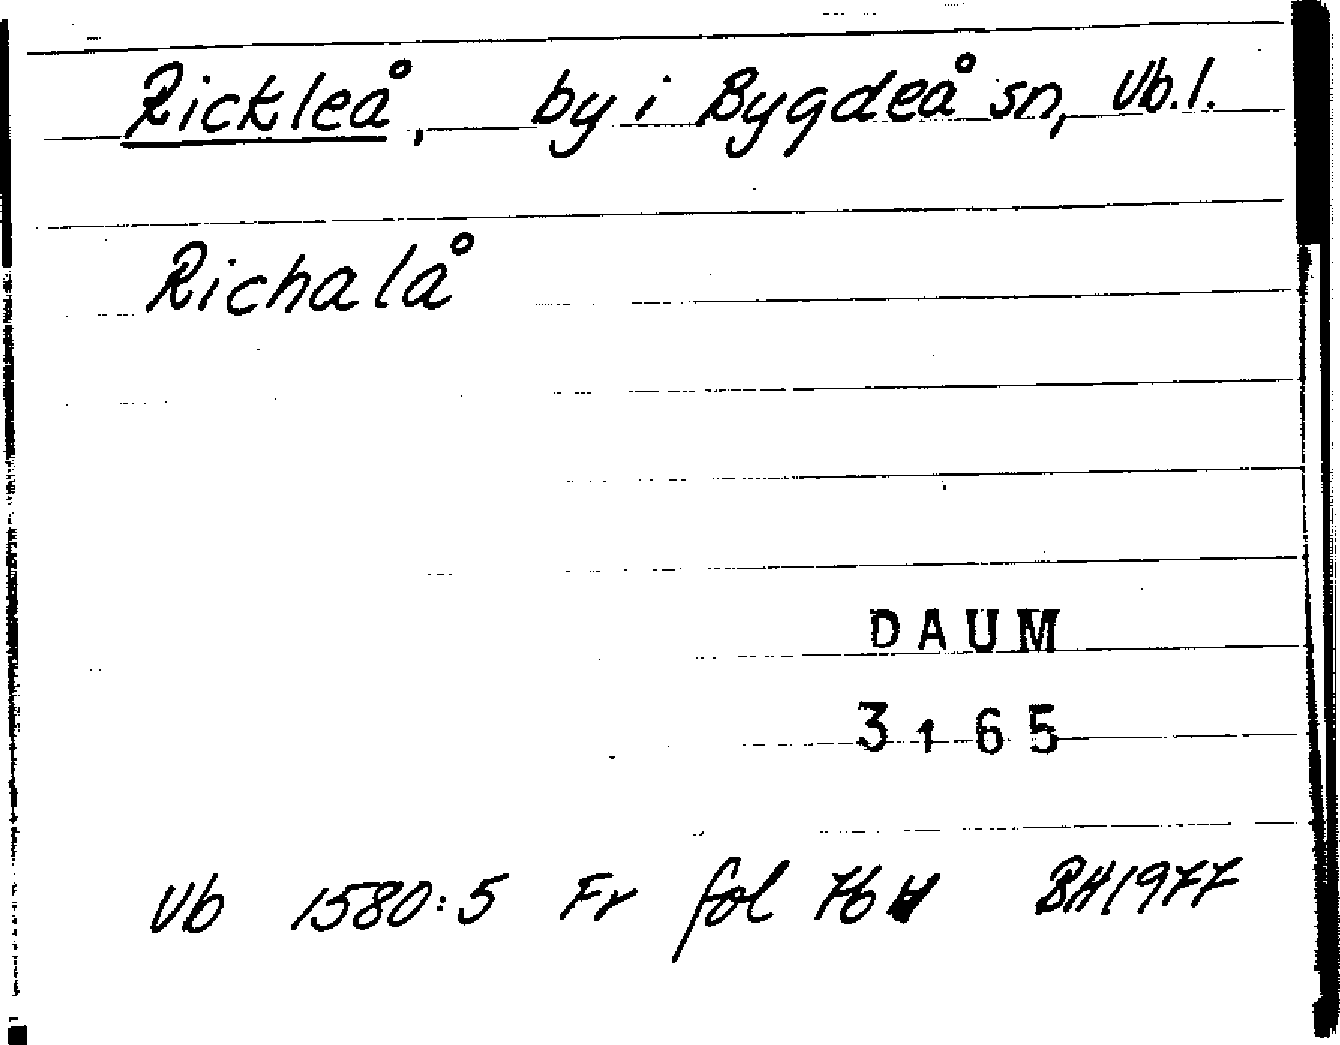 Rickleå, by i Bygdeå sn, Vb.l.
Richalå
DAUM
3165
Vb 1580:5 Fr fol 76 BH1977